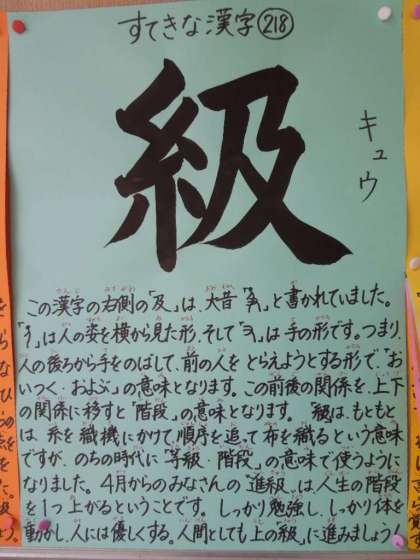 すてきな漢字218
級
キュウ
この漢字の右側の「及」は、大昔「」と書かれていました。
「」は人の姿を横から見た形、そして「」は手の形です。つまり、
人の後ろから手をのばして、前の人をとらえようとする形で、「お
いつく・およぶ」の意味となります。この前後の関係を、上下
の関係に移すと「階段」の意味となります。「級」は、もともと
は、糸を織機にかけて、順序を追って布を織るという意味
ですが、のちの時代に「等級・階段」の意味で使うように
なりました。4月からのみなさんの「進級」は、人生の階段
を1つ上がるということです。しっかり勉強し、しっかり体を
動かし、人には優しくする。人間としても上の「級」に進みましょう。